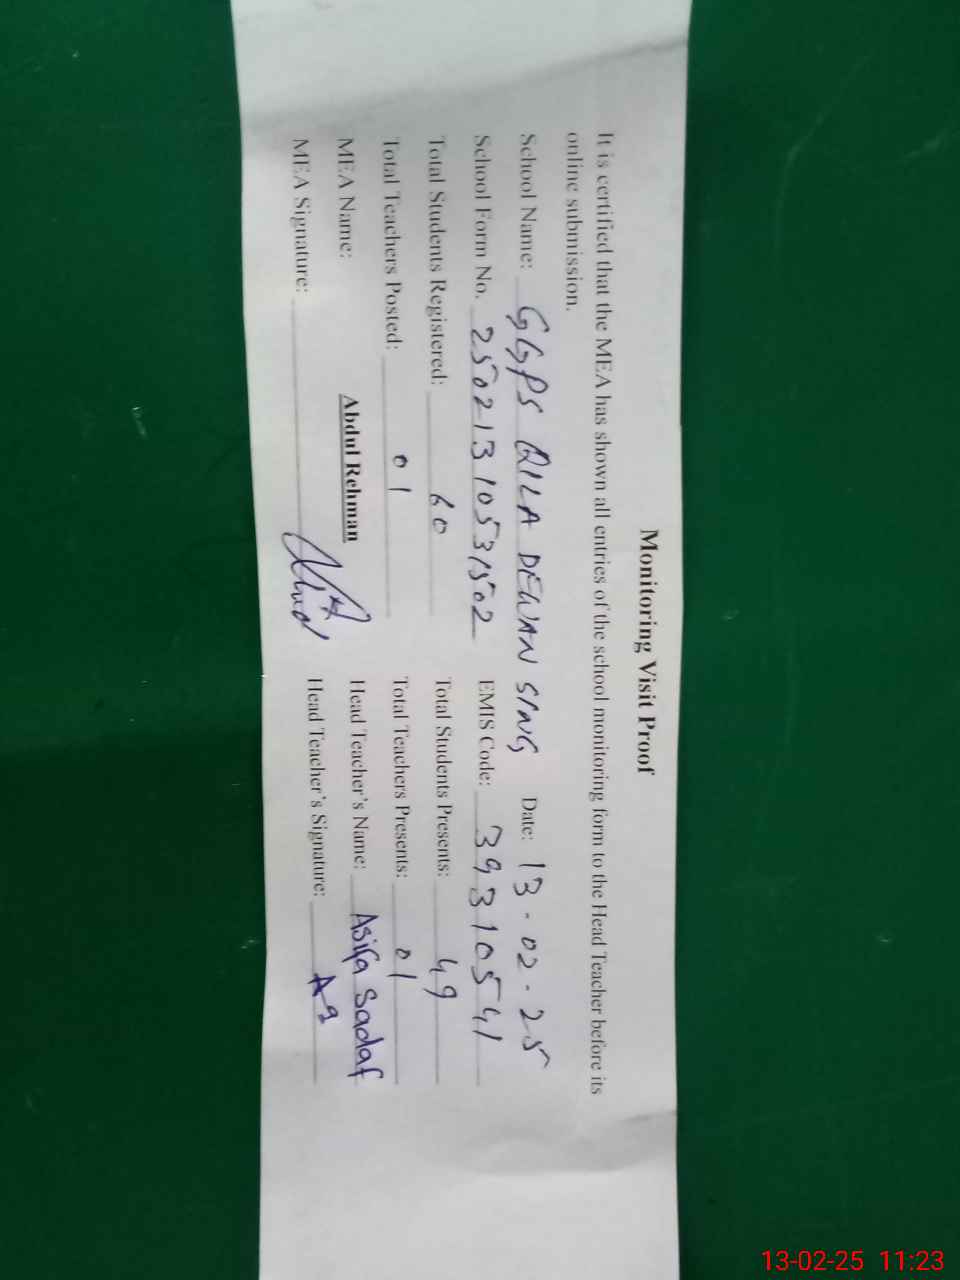 Monitoring Visit Proof
It is certified that the MEA has shown all entries of the school monitoring form to the Head Teacher before its
online submission.
School Name: GGPS QILA DEWAN SING Date: 13-02-25
School Form No. 25021310531502 EMIS Code: 39310541
Total Students Registered: 60 Total Students Presents: 49
Total Teachers Posted: 01 Total Teachers Presents: 01
MEA Name: Abdul Rehman Head Teacher's Name: Asifa Sadaf
MEA Signature: Head Teacher's Signature:
13-02-25 11:23